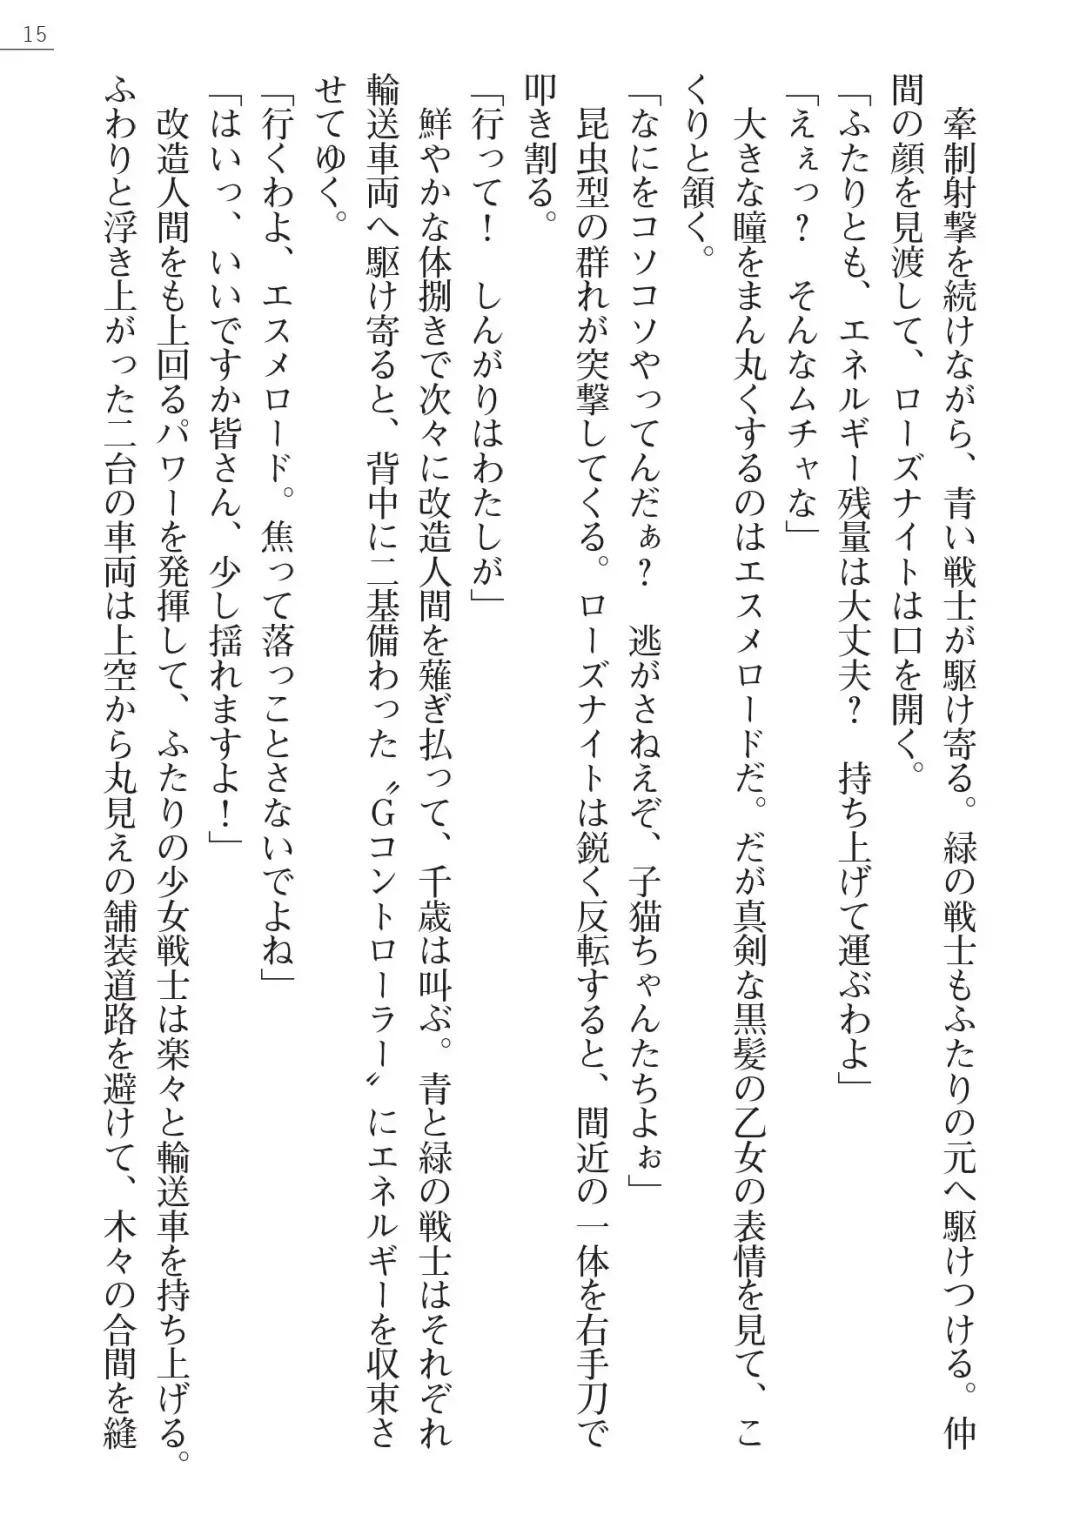 15
　牽制射撃を続けながら、青い戦士が駆け寄る。緑の戦士もふたりの元へ駆けつける。仲
間の顔を見渡して、ローズナイトは口を開く。
「ふたりとも、エネルギー残量は大丈夫？　持ち上げて運ぶわよ」
「えぇっ？　そんなムチャな」
　大きな瞳をまん丸くするのはエスメロードだ。だが真剣な黒髪の乙女の表情を見て、こ
くりと頷く。
「なにをコソコソやってんだぁ？　逃がさねえぞ、子猫ちゃんたちよぉ」
　昆虫型の群れが突撃してくる。ローズナイトは鋭く反転すると、間近の一体を右手刀で
叩き割る。
「行って！　しんがりはわたしが」
　鮮やかな体捌きで次々に改造人間を薙ぎ払って、千歳は叫ぶ。青と緑の戦士はそれぞれ
輸送車両へ駆け寄ると、背中に二基備わった〝Gコントローラー〟にエネルギーを収束さ
せてゆく。
「行くわよ、エスメロード。焦って落っことさないでよね」
「はいっ、いいですか皆さん、少し揺れますよ！」
　改造人間をも上回るパワーを発揮して、ふたりの少女戦士は楽々と輸送車を持ち上げる。
ふわりと浮き上がった二台の車両は上空から丸見えの舗装道路を避けて、木々の合間を縫